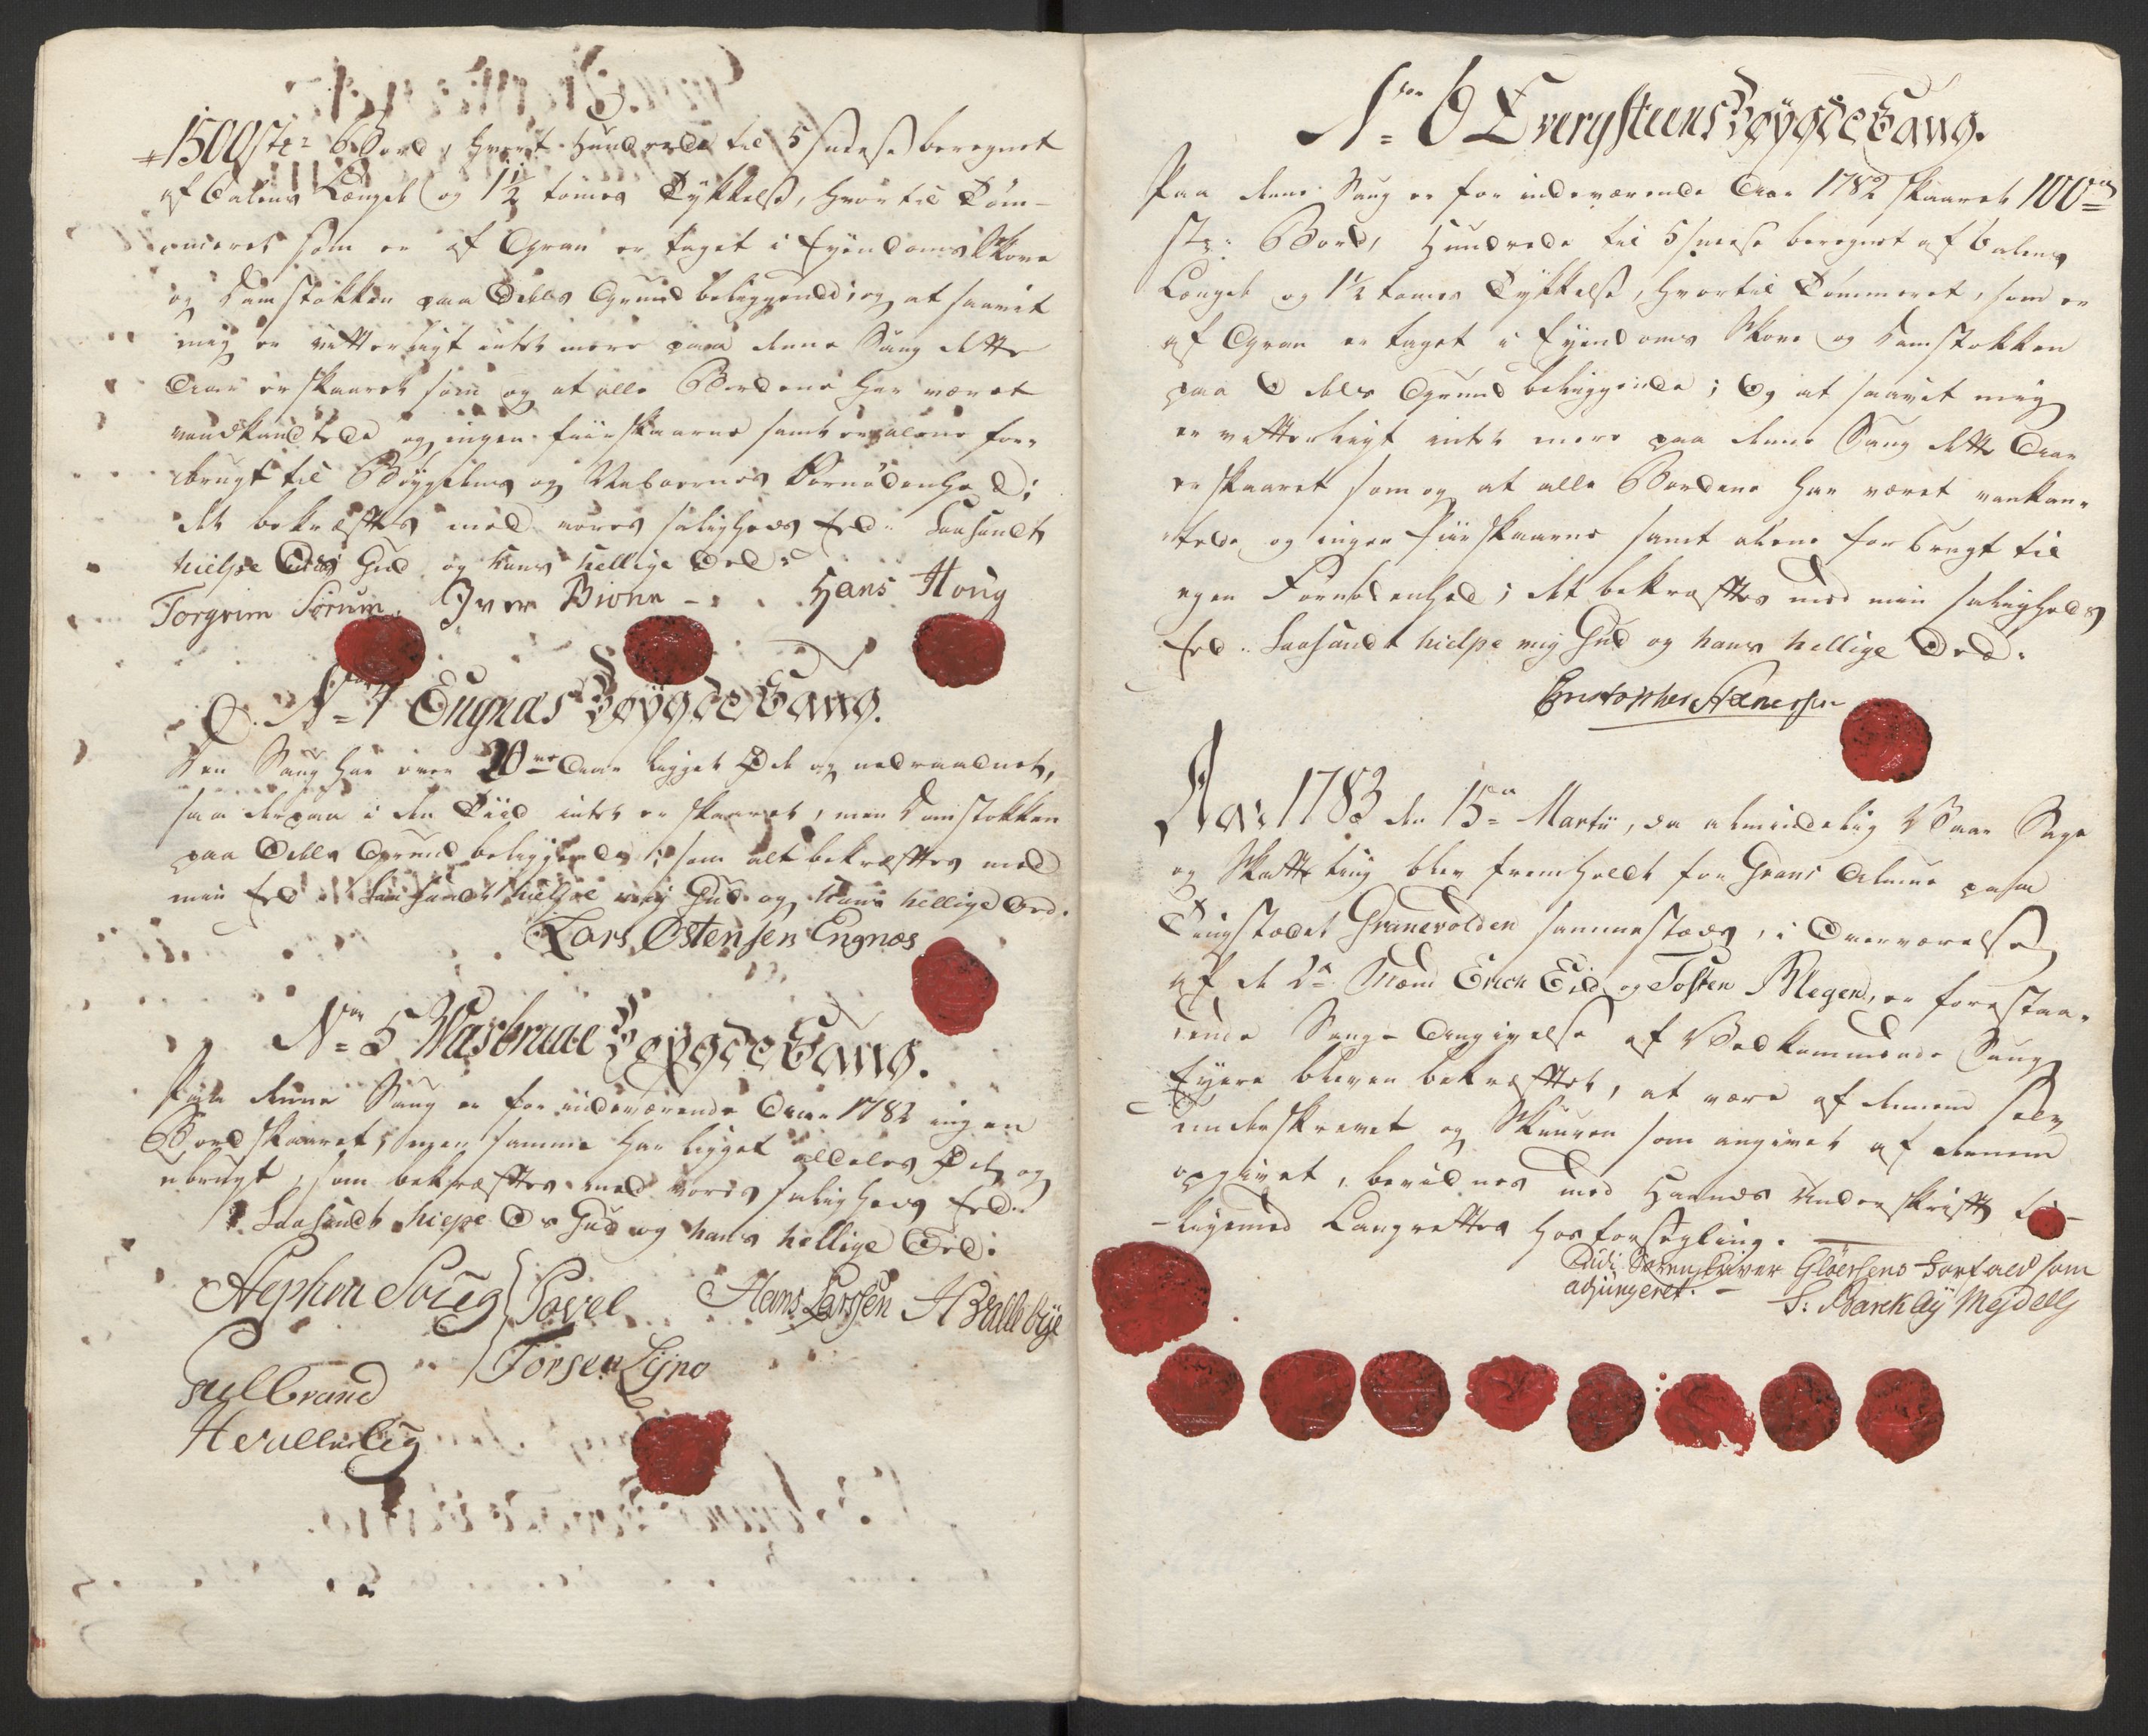 1500 stz: Bord, hvert Hundrede til 5 sneese beregnet
af 6 alens Længde og 1½ tomes Tykkelse, hvortil Töm-
meret som er af Gran er taget i Eyendoms Skove
og Damstokken paa Odels Grund beliggende; og at saavit
mig er vitterligt intet mere paa denne Saug dette
Aar er skaaret som og at alle Bordene har været
vandkandtede og ingen fiinskaarne samt er alene for-
brugt til Bøygdens og Naboernes Fornödenhed;
det bekræftes med vores saligheds Eed. Saasandt
hielpe Os Gud og hans hellige Ord.
Torgrim Sörum. Iver Bione - . Hans Houg
No 4 Engnæs Bøygde Saug.
Den Saug har over 20ve Aar ligget Øde og nedraadnet,
saa derpaa i den Tiid intet er skaaret, men Damstokken
paa Odels Grund beliggende; som alt bekræftes med
min Eed. Saasandt hielpe mig Gud og hans hellige Ord.
Lars Östensen Engnæs
No 5 Wasbrune Bøygde Saug.
Paa denne Saug er for indeværende Aar 1782 ingen
Bord skaaret, men samme har ligget aldeles Øde og
ubrugt, som bekræftes med vores saligheds Eed.
Saasandt hielpe Os Gud og hans hellige Ord.
Stephen Soug Povel Hans Larssen
Torsen Lijno
Gulbrand
No 6 Dvergsteens Bøygde Saug.
Paa denne Saug er for indeværende Aar 1782 skaaret 100de
stz: Bord, Hundrede til 5 sneese beregnet af 6 alens
Længde og 1½ tomes Tykkelse, hvortil Tömmeret, som er
af Gran er taget i Eyendoms Skove og Damstokken
paa Odels Grund beliggende; Og at saavit mig
er vitterligt intet mere paa denne Saug dette Aar
er skaaret som og at alle Bordene har været vankan-
tede og ingen fiinskaarne samt alene forbrugt til
egen Fornödenhed; det bekræftes med min saligheds
Eed. Saasandt hielpe mig Gud og hans hellige Ord.
Christopher
Aar 1783 den 15de Martii, da almindelig Vaar Sage
og Skatte ting blev fremholdt for Grans Almue paa
Tingstædet Granevolden sammestæds, i Overværelse
af de 2de Mænd Erich Eid og Tosten Blegen, er forestaa-
ende Saug-Angivelse af Vedkommende Saug
Eyere bleven bekræftet, at være af dennem selv
underskrevet og Skuuren som angivet af dennem
opgivet, bevidnes med Haands Underskrift til-
ligemed Laugrettes hosforsegling.
Udi Sorenskriver Gløersens Forfald som
adjungeret. -
S: Barchlay Mejdelly